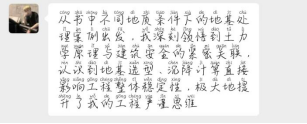 从书中不同地质条件下的地基处
理案例出发，我深刻领悟到土力
学原理与建筑安全的紧密关联，
认识到地基选型、沉降计算直接
影响工程整体稳定性，极大地提
升了我的工程严谨思维